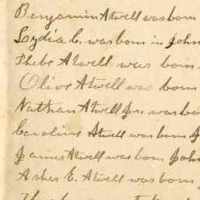 Benjamin Atwell was born
Lydia C. was born in John
Phebe Atwell was born
Olive Atwell was born
Nathan Atwell Jr was bor
Caroline Atwell was born J
James Atwell was born John
Asher E. Atwell was born